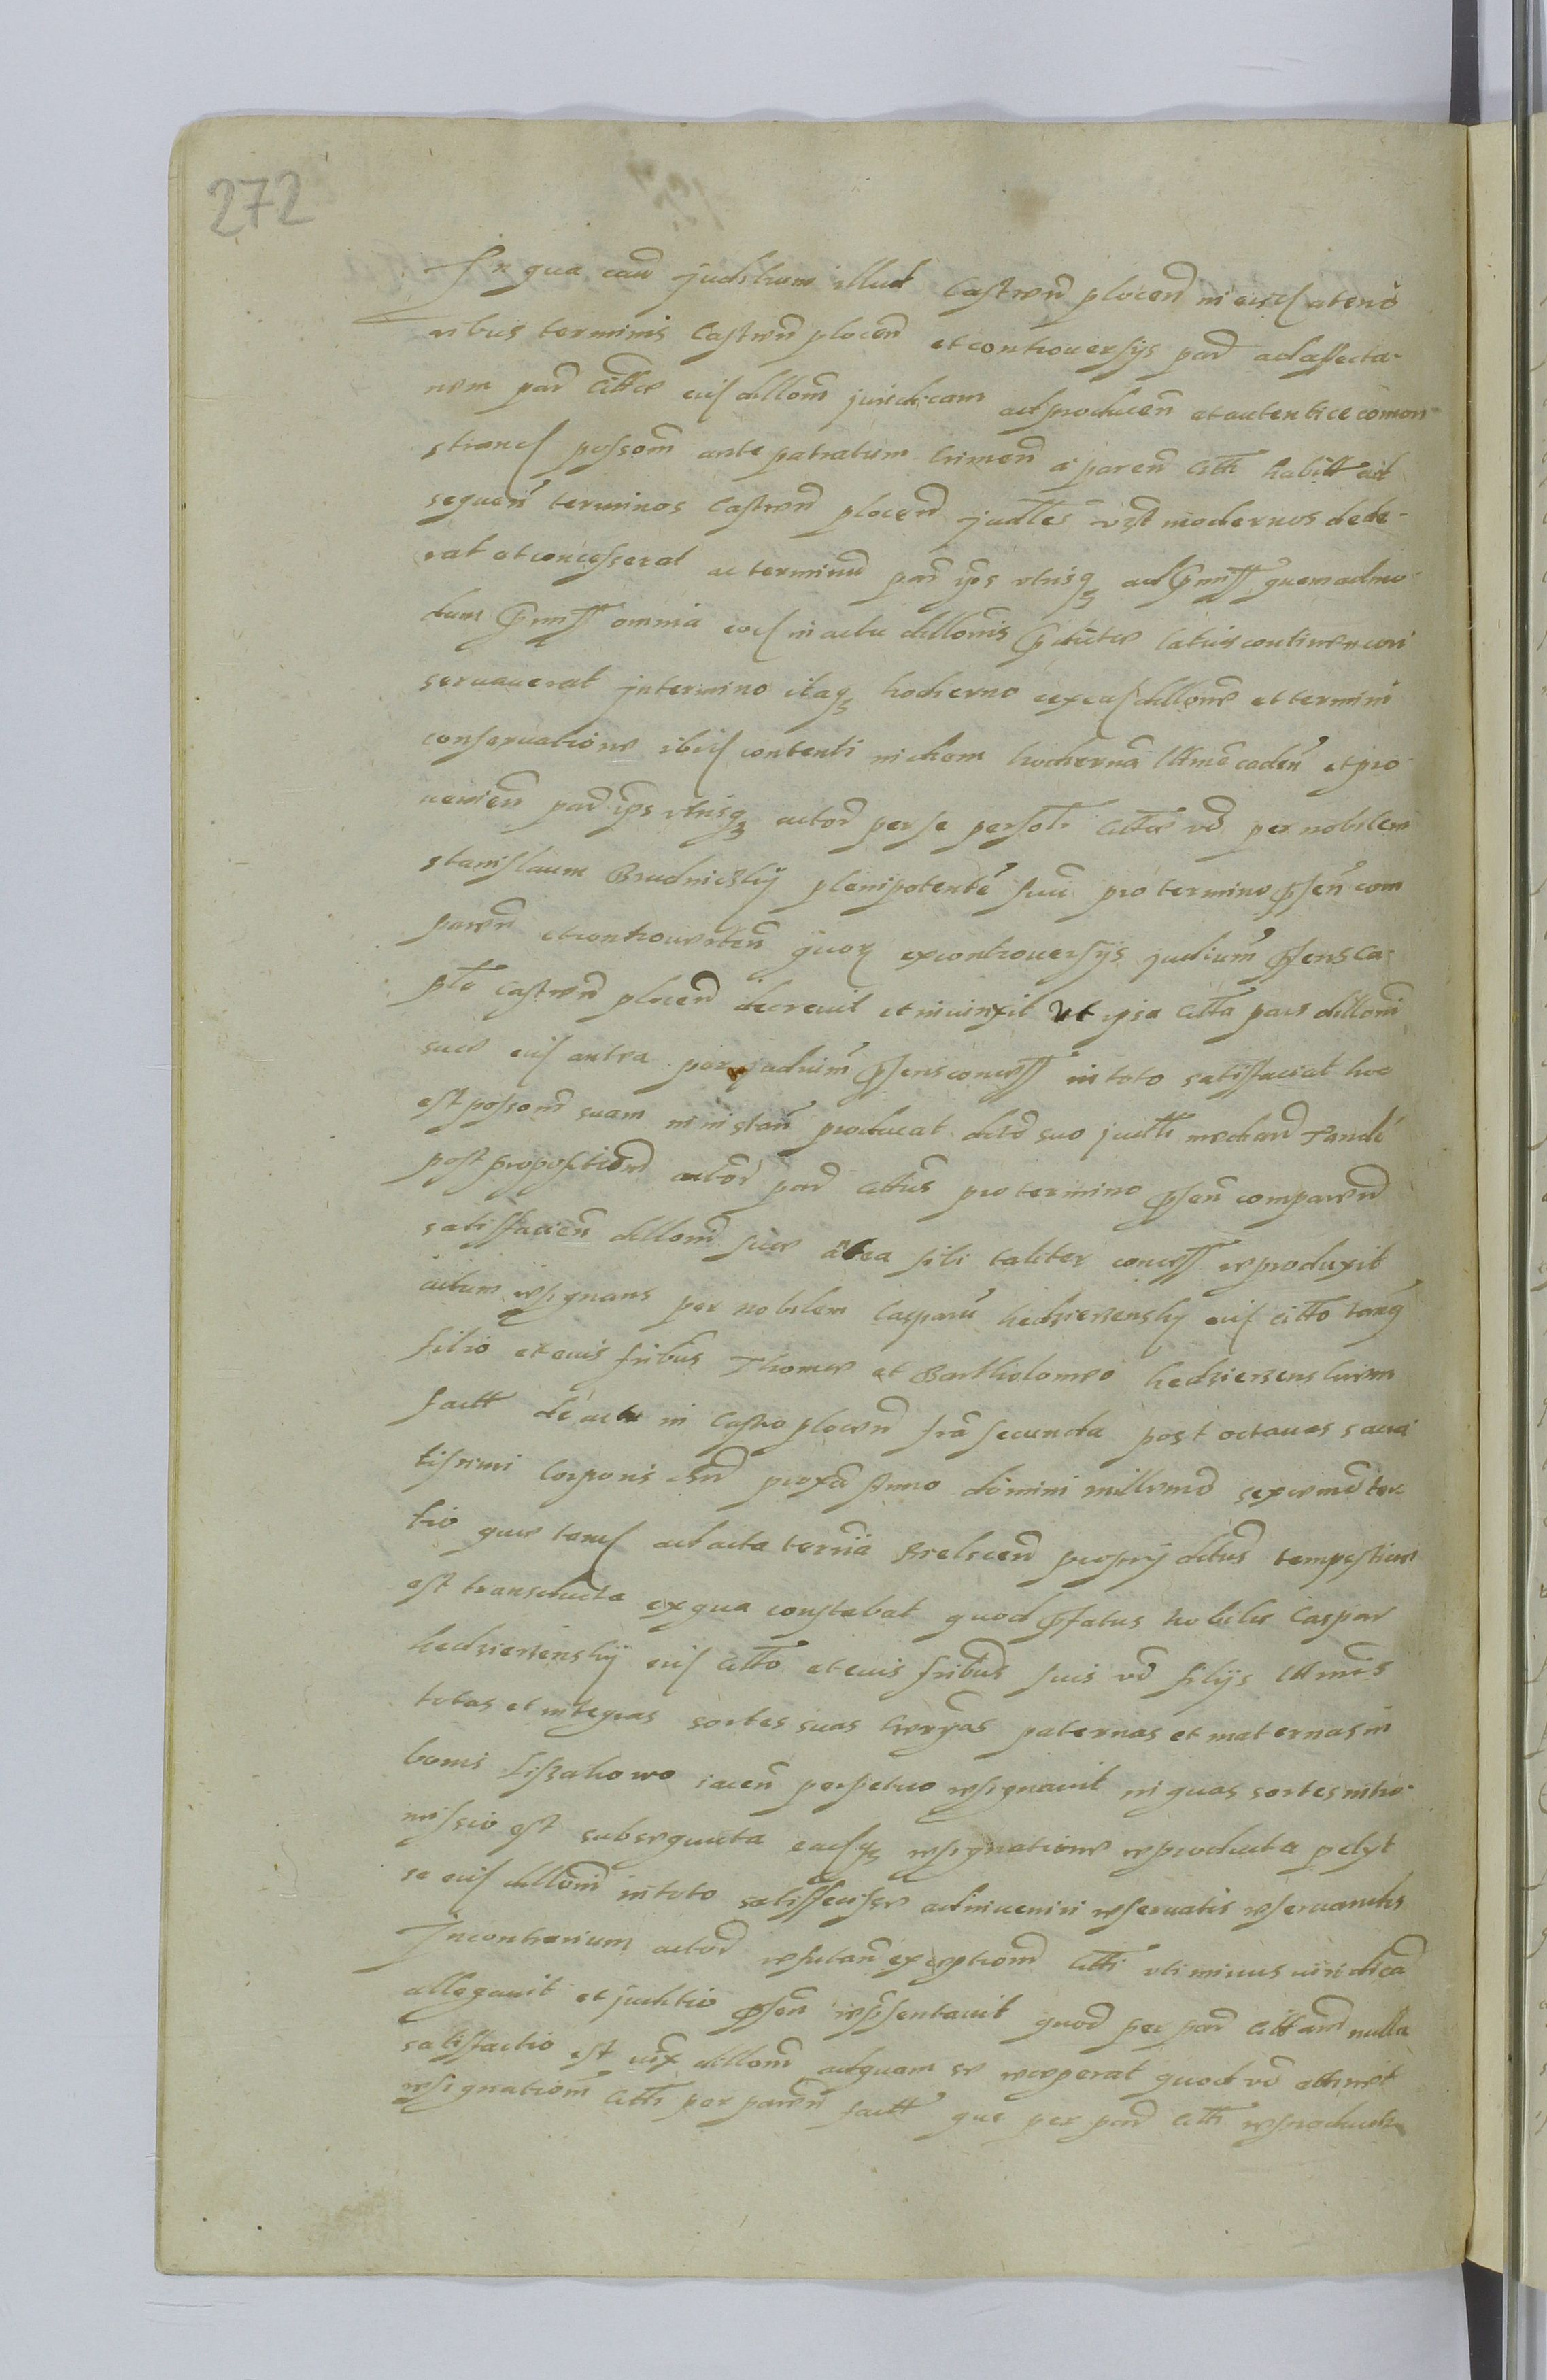 272
In qua cau judicium illud Castren plocen in eisd anterio
ribus terminis Castren plocen et controuersijs par ad affecta
nem par Citte eid dillom juridicam ad producen et autentice comon
strand possom ante patratum Crimen a paren Citti habitt ad
sequen terminos Castren plocen judles vest modernos dede
rat et concesserat ac terminu par ips vtrisq ad pmiss quemadmo
dum pmiss omnia eod in actu dillonis latius continen con
seruauerat jn termino itaq hodierno ex ead dillone et termini
conseruatione ibid contenti in diem hodierna lttme caden et pro
uenien par ips vtrisq actor per se personlr Citta vo per nobilem
stanislaum Brudniczky plenipotente suu pro termino psen com
paren et controuerten quor ex controuersijs judium psens Ca
pta castren plocen decreuit et iniunxit Vt ipsa Citta pars dilloni
suae eid antea per judium psens concess in toto satisfaciat hoc
est possom suam in instan producat dicto suo juitti median Tande
post propositiom actor par Cittus pro termino psen comparen
satisfacien dillom sue antea sibi taliter concess reproduxit
actum resignans per nobilem Casparu kedzierzensky eid Citto tanq
filio et euis fribus Thomae et Bartholomeo kedzierzenskiem
factt de actu in Castro plocen fra secunda post octauas sacra
tissimi Corporis Chri proxa Anno domini millemo sexcenmo ter
tio quae tand ad acta ternia Bielscen proprij dictus tempestiue
est transducta ex qua constabat quod pfatus nobilis Caspar
kedzierzensky eid Citto et euis fribus suis vo filijs lttmis
totas et integras sortes suas herrias paternas et maternas in
bonis Liszakowo iacen perpetuo resignauit in quas sortes intro
missio est subsequuta eadq resignatione reproducta petyt
se eid dillom in toto satisfecisse adinueniri reseruatis reseruandis
In contrarium actor refutan exceptiom Citti vti minus iuridica
allegauit et juditio psen repsentauit quod per par Cittam nulla
satisfactio est iux dillom ad quam se receperat quod vo attinet
resignatiom Citti per paren factt que per par Citti reproducta